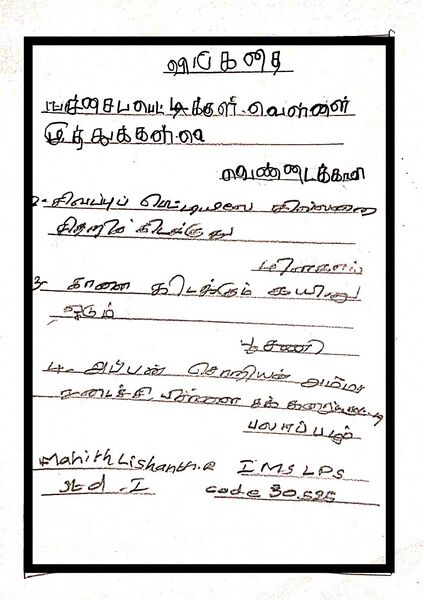 விடுகதை
பச்சைபெட்டிக்குள் வெள்ளை
முத்துக்கள்
வெண்டைக்காய்
2- சிவப்புப் பெட்டியிலே சில்லறை
சிதறிக் கிடக்குது
3- காளை கிடக்கும் கயிறு
ஓடும்
பூசணி
4- அப்பன் சொறியன் அம்மா
சடைச்சி பிள்ளை
பலாப்பழம்
Mahith Lishanth.R IMS LPS
std - I code 30.525